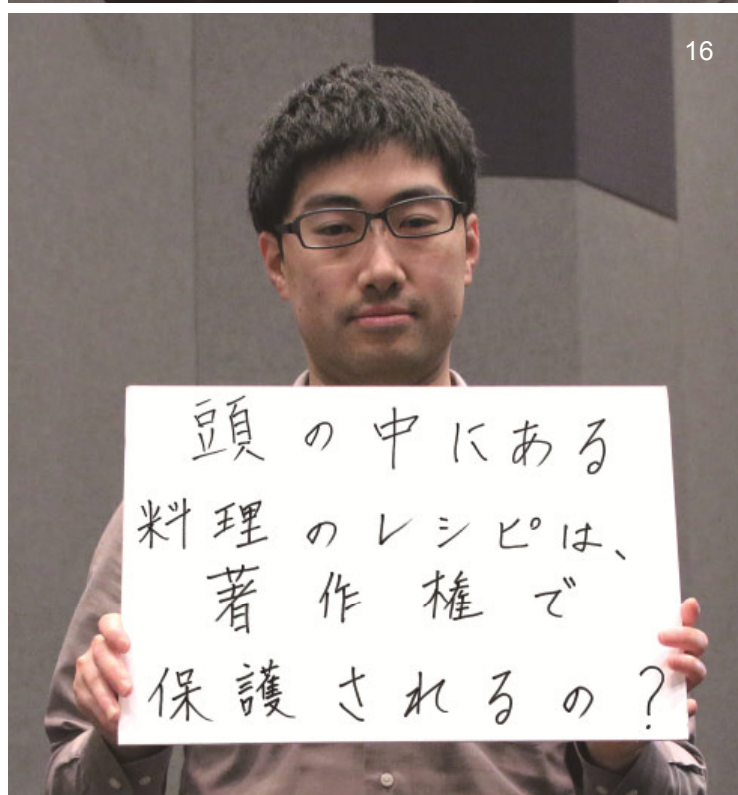 16
頭の中にある
料理のレシピは、
著作権で
保護されるの?